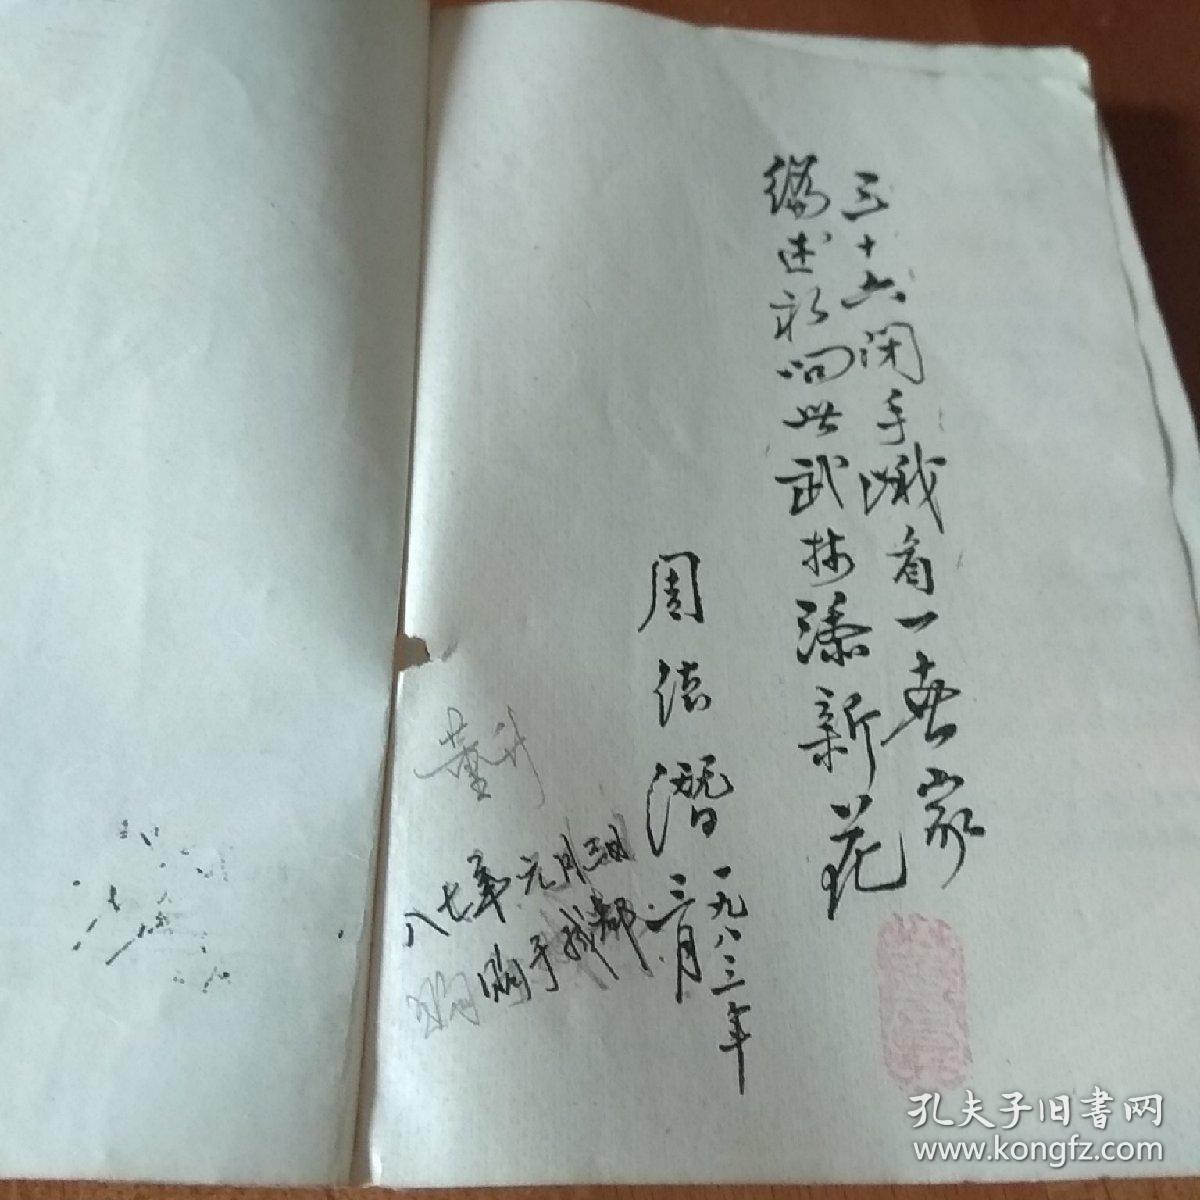 三十六闭手峨眉一老家
编述初问世武林添新花
周德潜
一九八三年
三月
董升
八七年元月三日
购于成都
孔夫子旧书网
www.kongfz.com